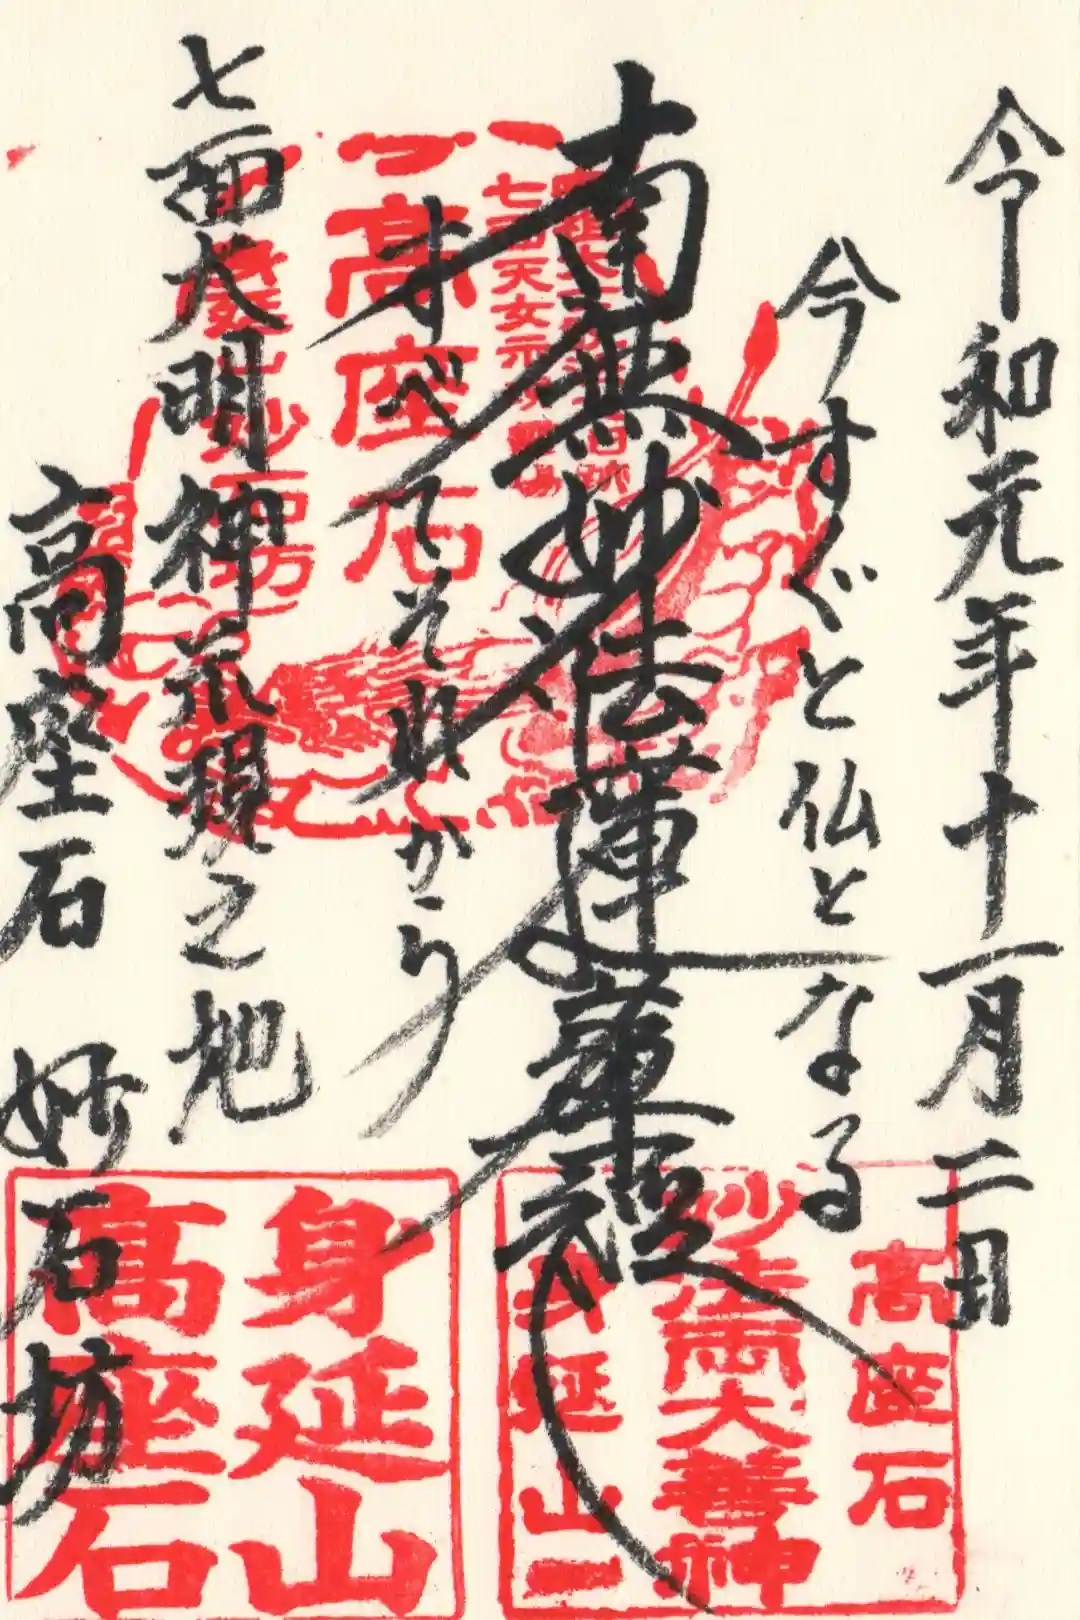 令和元年十一月二日
今すぐと仏となる
南無妙法蓮華経
すべてそれから
七面大明神示現之地
高座石 妙石坊
高座石
七面天女示現
妙石坊
高座石
妙法両大善神
身延山
身延山
高座石